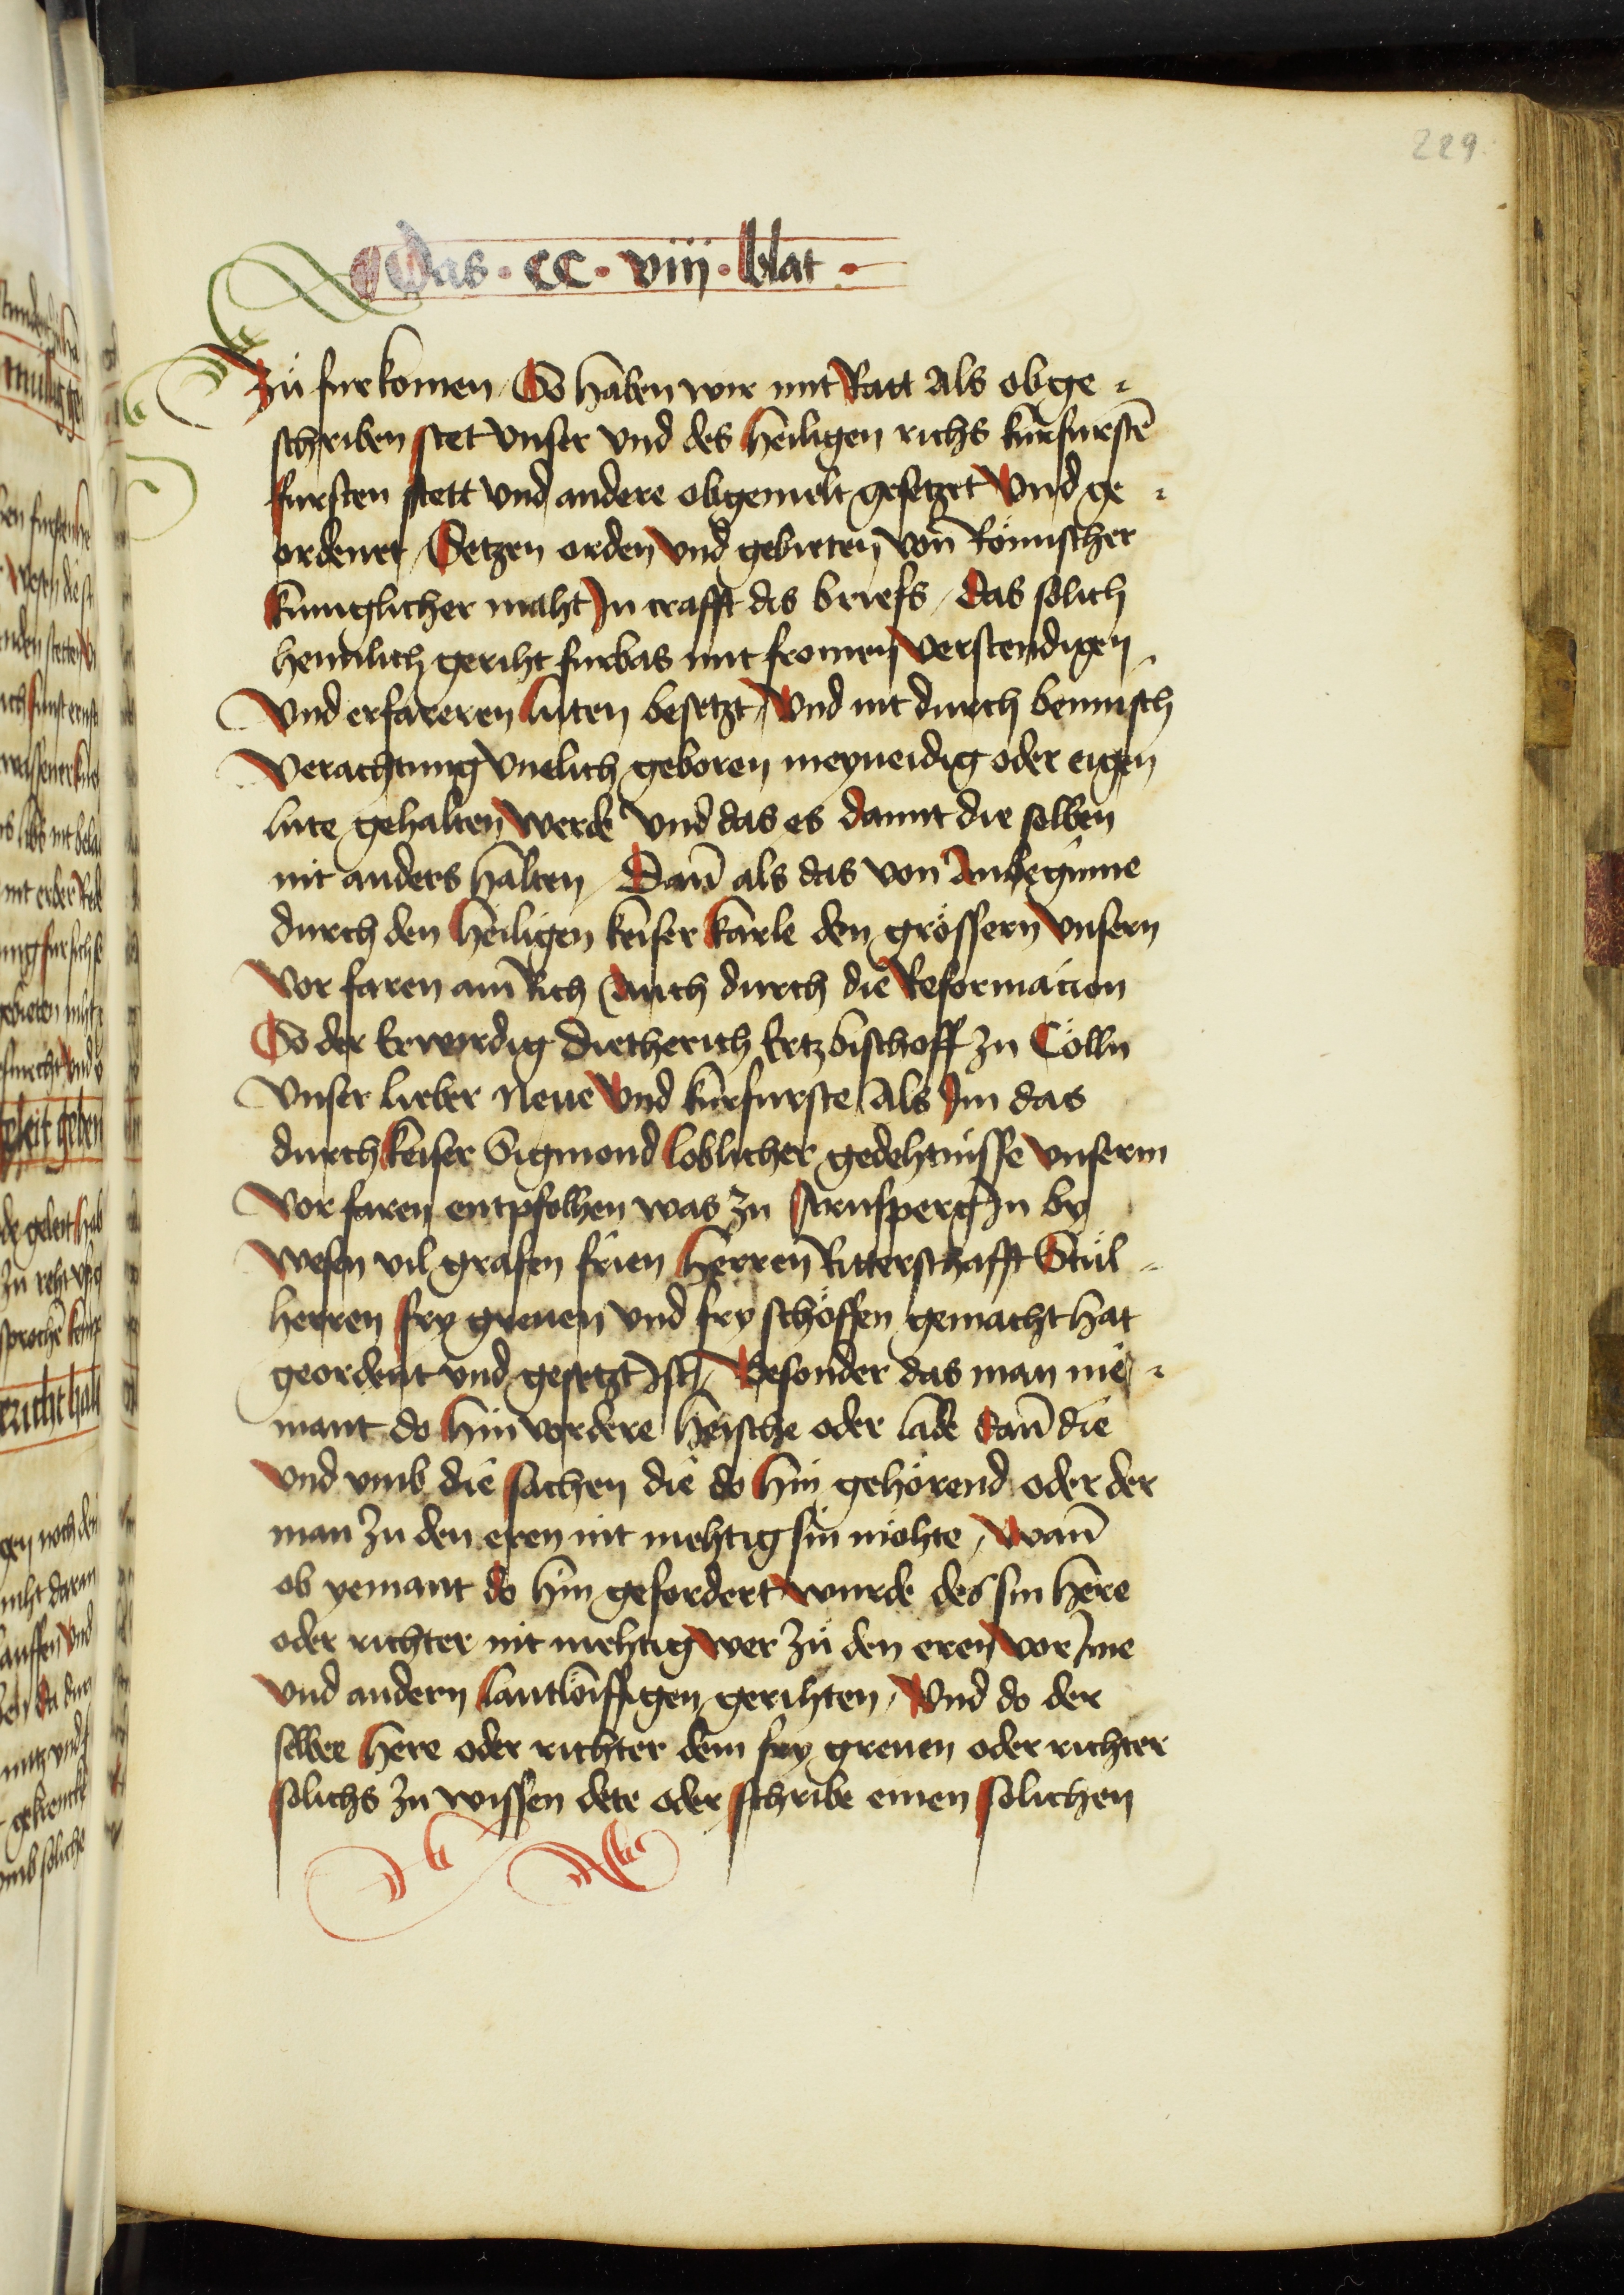 229
Das · CC · viij · blat ·
Zů furkomen / So haben wir mit Ratt Als obge⸗
schriben stet vnser vnd des heiligen richs kůrfurstē
fursten stett vnd andere obgemelt gesetzet Vnd ge⸗
ordenet / Setzen orden vnd gebieten von Römischer
kuniglicher maht In crafft dis briefs / das solich
heimlich geriht furbas mit fromen verstendigen
Vnd erfareren luten besetzt / Vnd nit durch bennisch
Verachtung vnelich geboren meyneidig oder eigen
lute gehalten werde vnd das es damit die selben
nit anders halten / Dañ als das von Anbeginne
durch den heiligen keiser karle den grössern vnsern
Vor faren am Rich / Auch durch die Reformacion
So der Erwirdig Dietherich Ertzbischoff zu Cölln
Vnser lieber Neue vnd kurfurste / Als Im das
durch keiser Sigmond loblicher gedehtnisse vnserm
Vor faren entpfolhen was zu Arnsperg In by
wesen vil grafen frien herren Ritterschafft Stůl⸗
herren fry greuen vnd fry schöffen gemacht hat
geordent vnd gesetzt ist / Besonder das man nie⸗
mant do hin vordere heische oder lade dañ die
vnd vmb die sachen die do hin gehörend oder der
man zu den eren nit mehtig sin möhte / wañ
ob yemant do hin gefordert wurde des sin here
oder richter nit mehtig wer zů den eren vor Ime
vnd andern lantlöiffigen gerihten / Vnd do der
selbe here oder richter dem fry greuen oder richter
solichs zu wissen dete oder schribe einen solichen